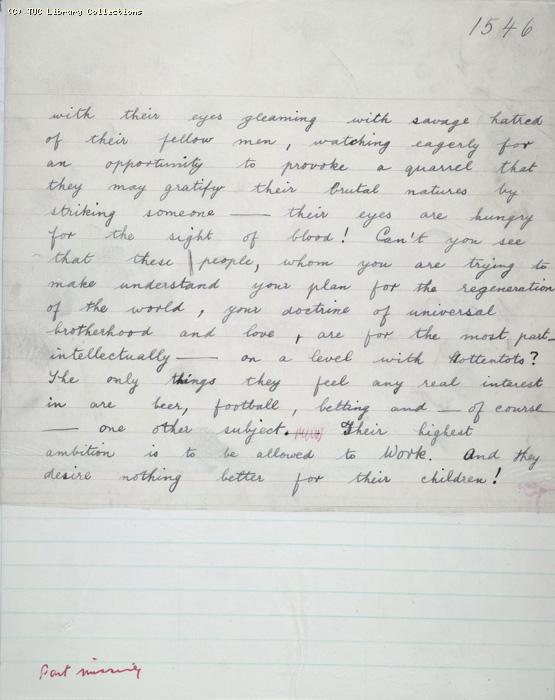 (C) TUC Library Collections
1546
with their eyes gleaming with savage hatred
of their fellow men, watching eagerly for
an opportunity to provoke a quarrel that
they may gratify their brutal natures by
striking someone — their eyes are hungry
for the sight of blood! Can't you see
that these people, whom you are trying to
make understand your plan for the regeneration
of the world, your doctrine of universal
brotherhood and love, are for the most part —
intellectually — on a level with Hottentots?
The only things they feel any real interest
in are beer, football, betting and — of course
— one other subject. Their highest
ambition is to be allowed to Work. And they
desire nothing better for their children!
Part missing